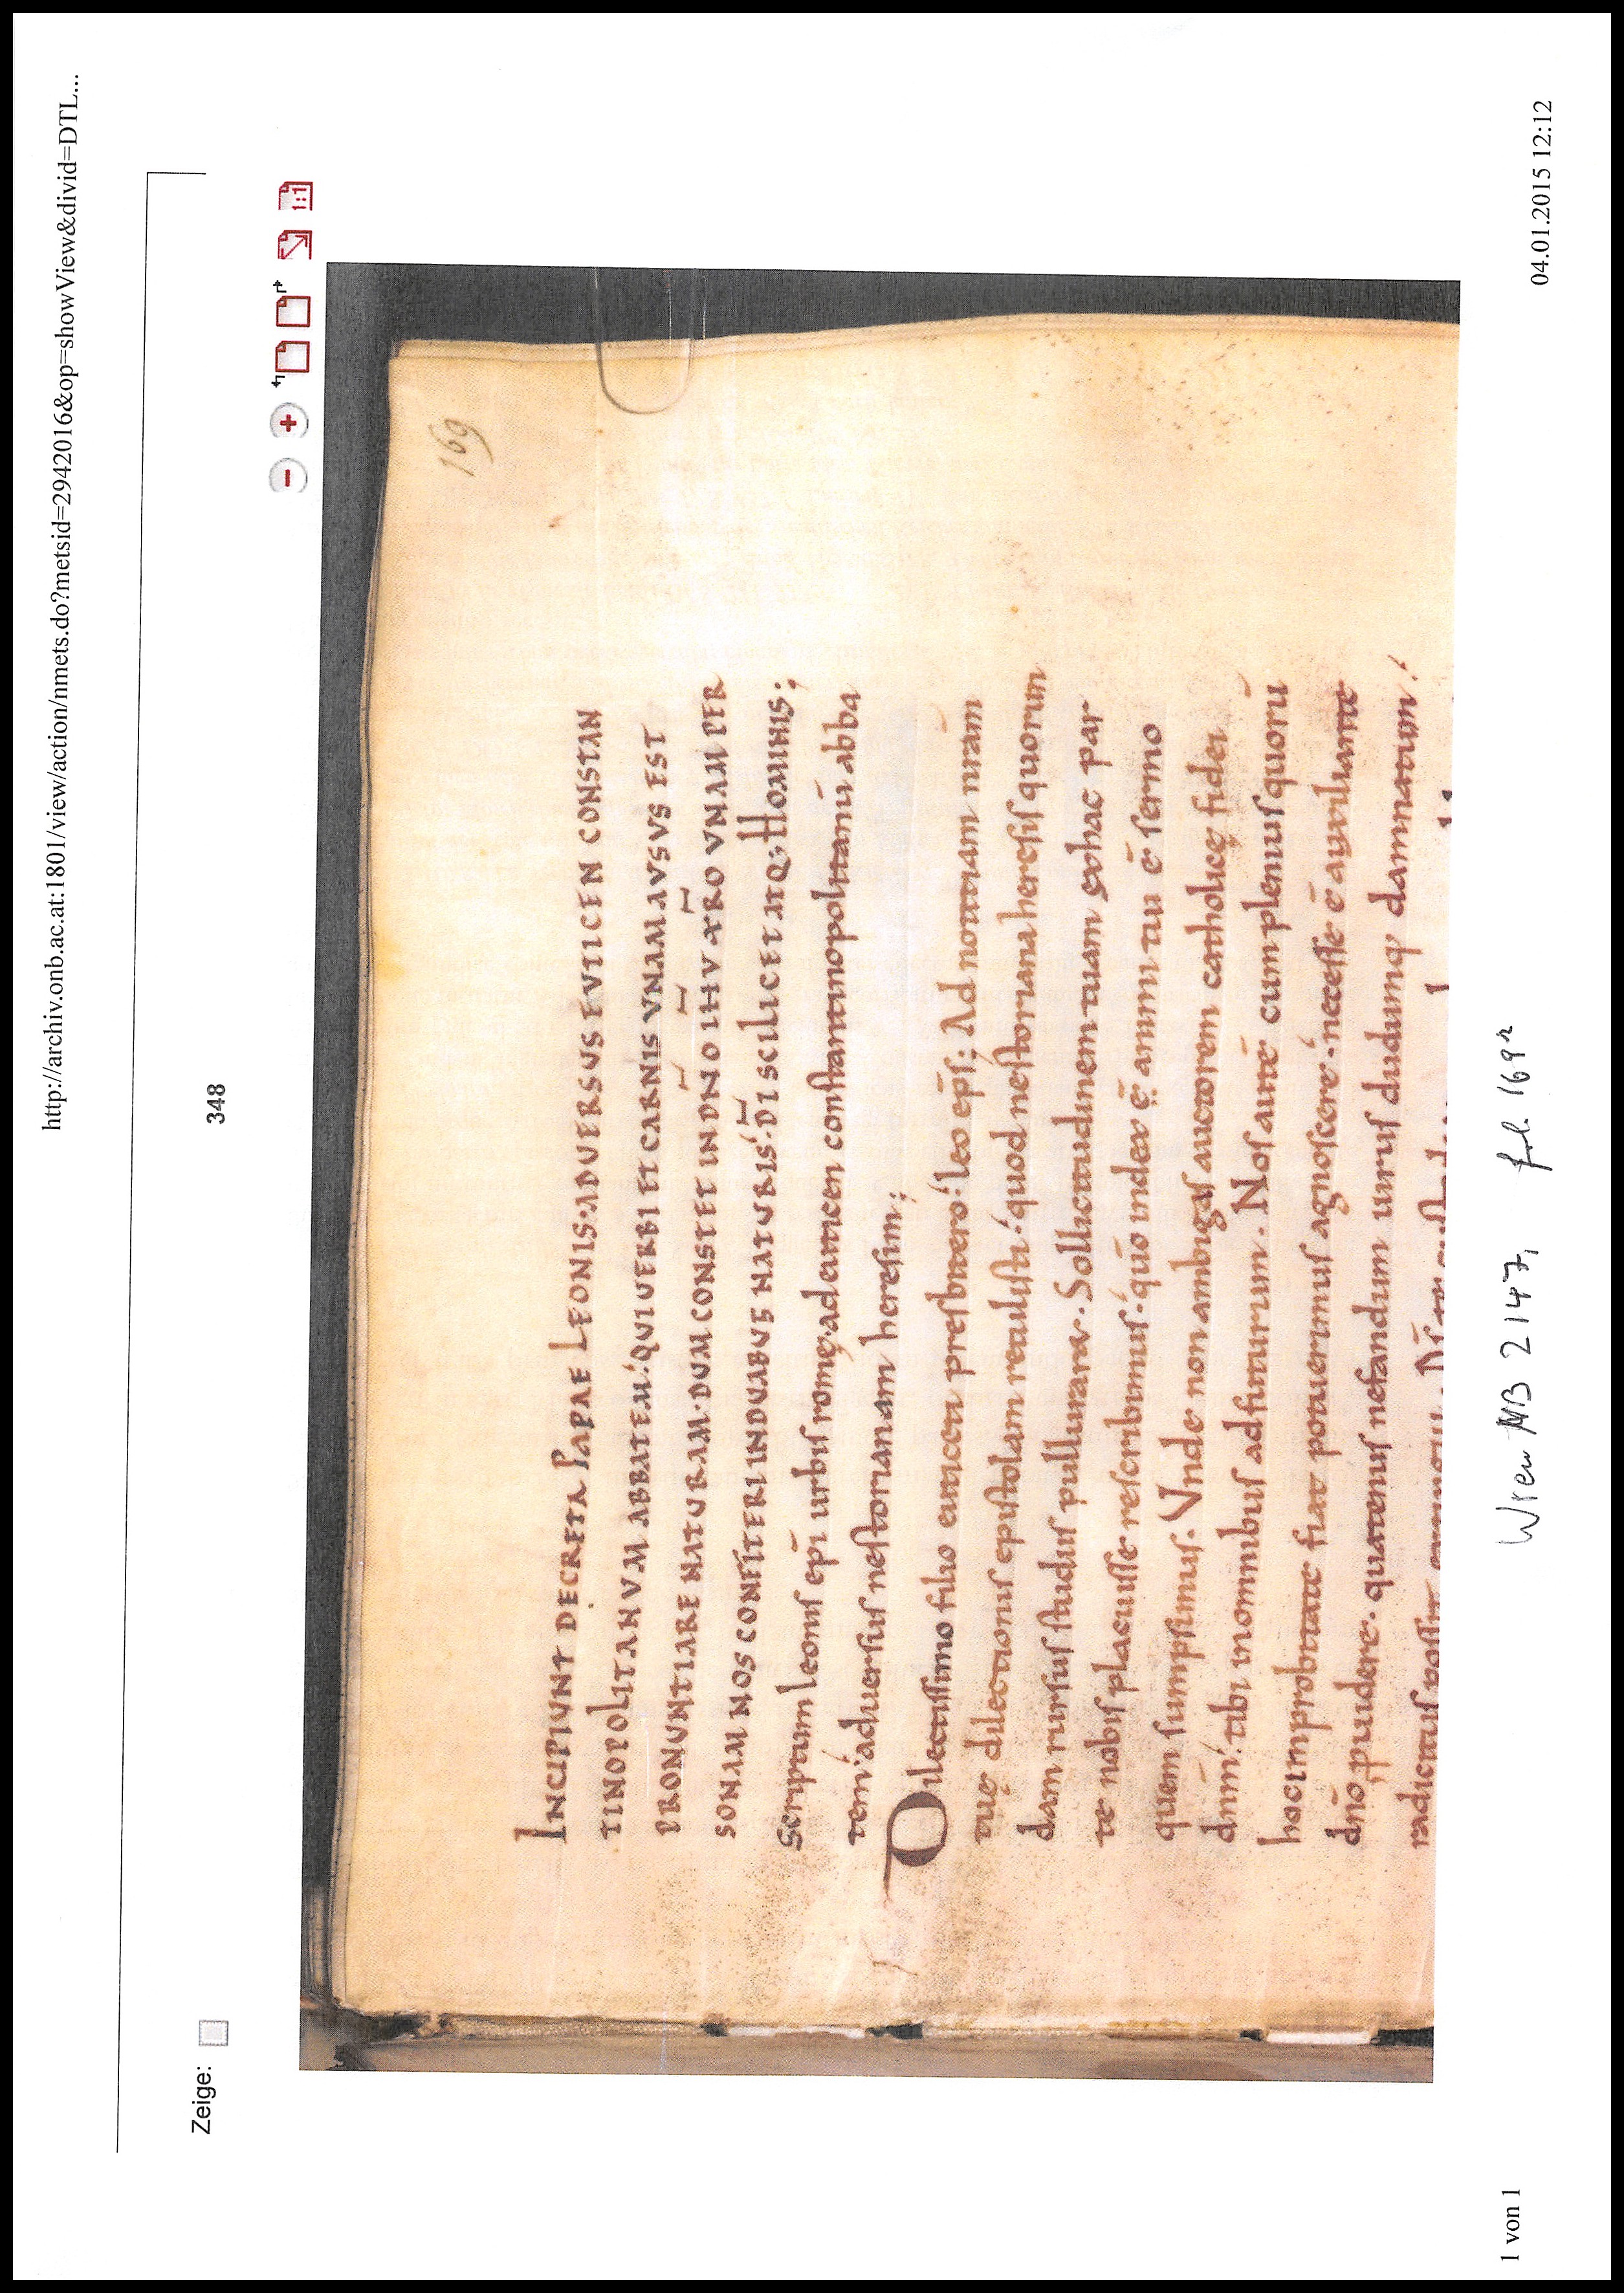 http://archiv.onb.ac.at:1801/view/action/nmets.do?metsid=2942016&op=showView&divid=DTL...
Zeige:
348
1:1
169
INCIPIUNT DECRETA PAPAE LEONIS·ADVERSVS EVTICEN CONSTAN
TINOPOLITANVM ABBATEM:QVI VERBI ET CARNIS VNAM AVSVS EST
PRONVNTIARE NATVRAM·DVM CONSTET IN DN̄O IH̄V XP̄O VNAM PER
SONAM NOS CONFITERI IN DVABVS NATVRIS·DĪ SCILICET ATQ; HOMINIS;
Scriptum leonis ep̄i urbis romę·ad euticen constantinopolitanū abba
tem·aduersus nestorianam heresim;
Dilectissimo filio euticeti presbitero·leo ep̄s: Ad notitiam nr̄am
tuę dilectionis epistolam retulisti·quod nestoriana heresis quorun
dam rursus studiis pullurarat·Sollicitudinem tuam ex hac par
te nobis placuisse rescribimus·qūo index ē animi tu ē sermo
quem sumpsimus·Vnde non ambigas auctorem catholicę fidei
dn̄m·tibi in omnibus adfuturum·Nos autē cum plenius quorū
hoc improbitate fiat potuerimus agnoscere·necesse ē auxiliante
dn̄o ꝓuidere·quatenus nefandum uirus dudumq; damnatum·
radicitus possit
Wien NB 2147, fol. 169r
1 von 1
04.01.2015 12:12